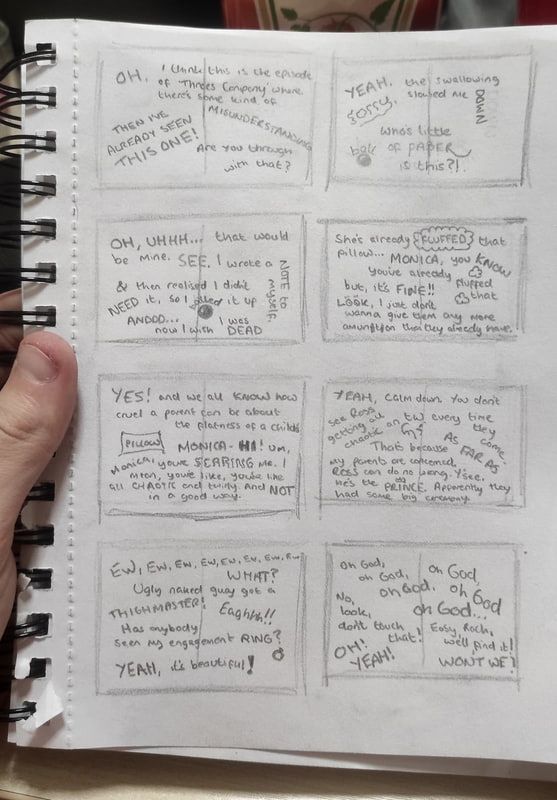 OH, I think this is the episode
of 'Threes Company' where
there's some kind of
MISUNDERSTANDING
THEN I'VE
ALREADY SEEN
THIS ONE!
Are you through
with that?
YEAH, the swallowing
SORRY, slowed me
DOWN
Who's little
ball of PAPER
is this?!
OH, UHHH... that would
be mine. SEE, I wrote a
NOTE to
myself,
& then realised I didn't
NEED it, so I balled it up
ANDDD...
now I wish I was
DEAD
She's already FLUFFED that
pillow... MONICA, you KNOW
you've already
fluffed
but, it's FINE!! that
LOOK, I just don't
wanna give them any more
ammunition than they already have.
YES! and we all KNOW how
cruel a parent can be about
the flatness of a child's
PILLOW
MONICA- HI! Um,
Monica, you're SCARING me. I
mean, you're like, you're like
all CHAOTIC and twirly. And NOT
in a good way.
YEAH, calm down. You don't
see Ross
getting all
chaotic an tw every time
they
come.
That's because AS FAR AS
my parents are concerned,
ROSS can do no wrong. Y'see,
he's the PRINCE. Apparently they
had some big ceremony
EW, EW, EW, EW, EW, EW, EW
WHAT?
Ugly naked guy got a
THIGHMASTER!
Eaghhh!!
Has anybody
seen my engagement RING?
YEAH, it's beautiful!
Oh God,
oh God, oh God,
oh God, oh God
oh God...
No,
look,
don't touch
that!
OH!
YEAH!
Easy Rach,
we'll find it!
WONT WE?